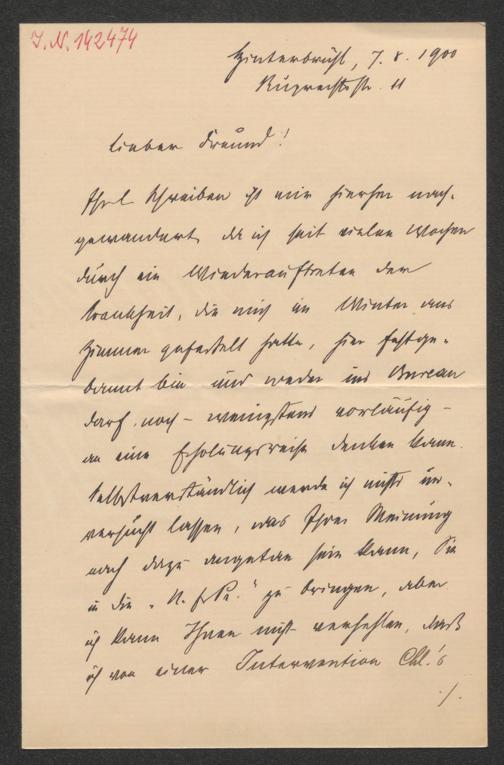 I. N. 142474
Hinterbrühl, 7. 8. 1900
Ruprechtstr. 11
Lieber Freund!
Ihr Schreiben ist mir hierher nach-
gewandert, da ich seit vielen Wochen
durch ein Wiederauftreten der
Krankheit, die mich im Winter ans
Zimmer gefesselt hatte, hier festge-
bannt bin und weder ins Bureau
darf, noch – wenigstens vorläufig –
an eine Erholungsreise denken kann.
Selbstverständlich werde ich nichts un-
versucht lassen, was Ihrer Meinung
nach dazu angetan sein kann, Sie
in die „N. Fr. Pr." zu bringen, aber
ich kann Ihnen nicht verhehlen, daß
ich von einer Intervention Chl.'s
./.